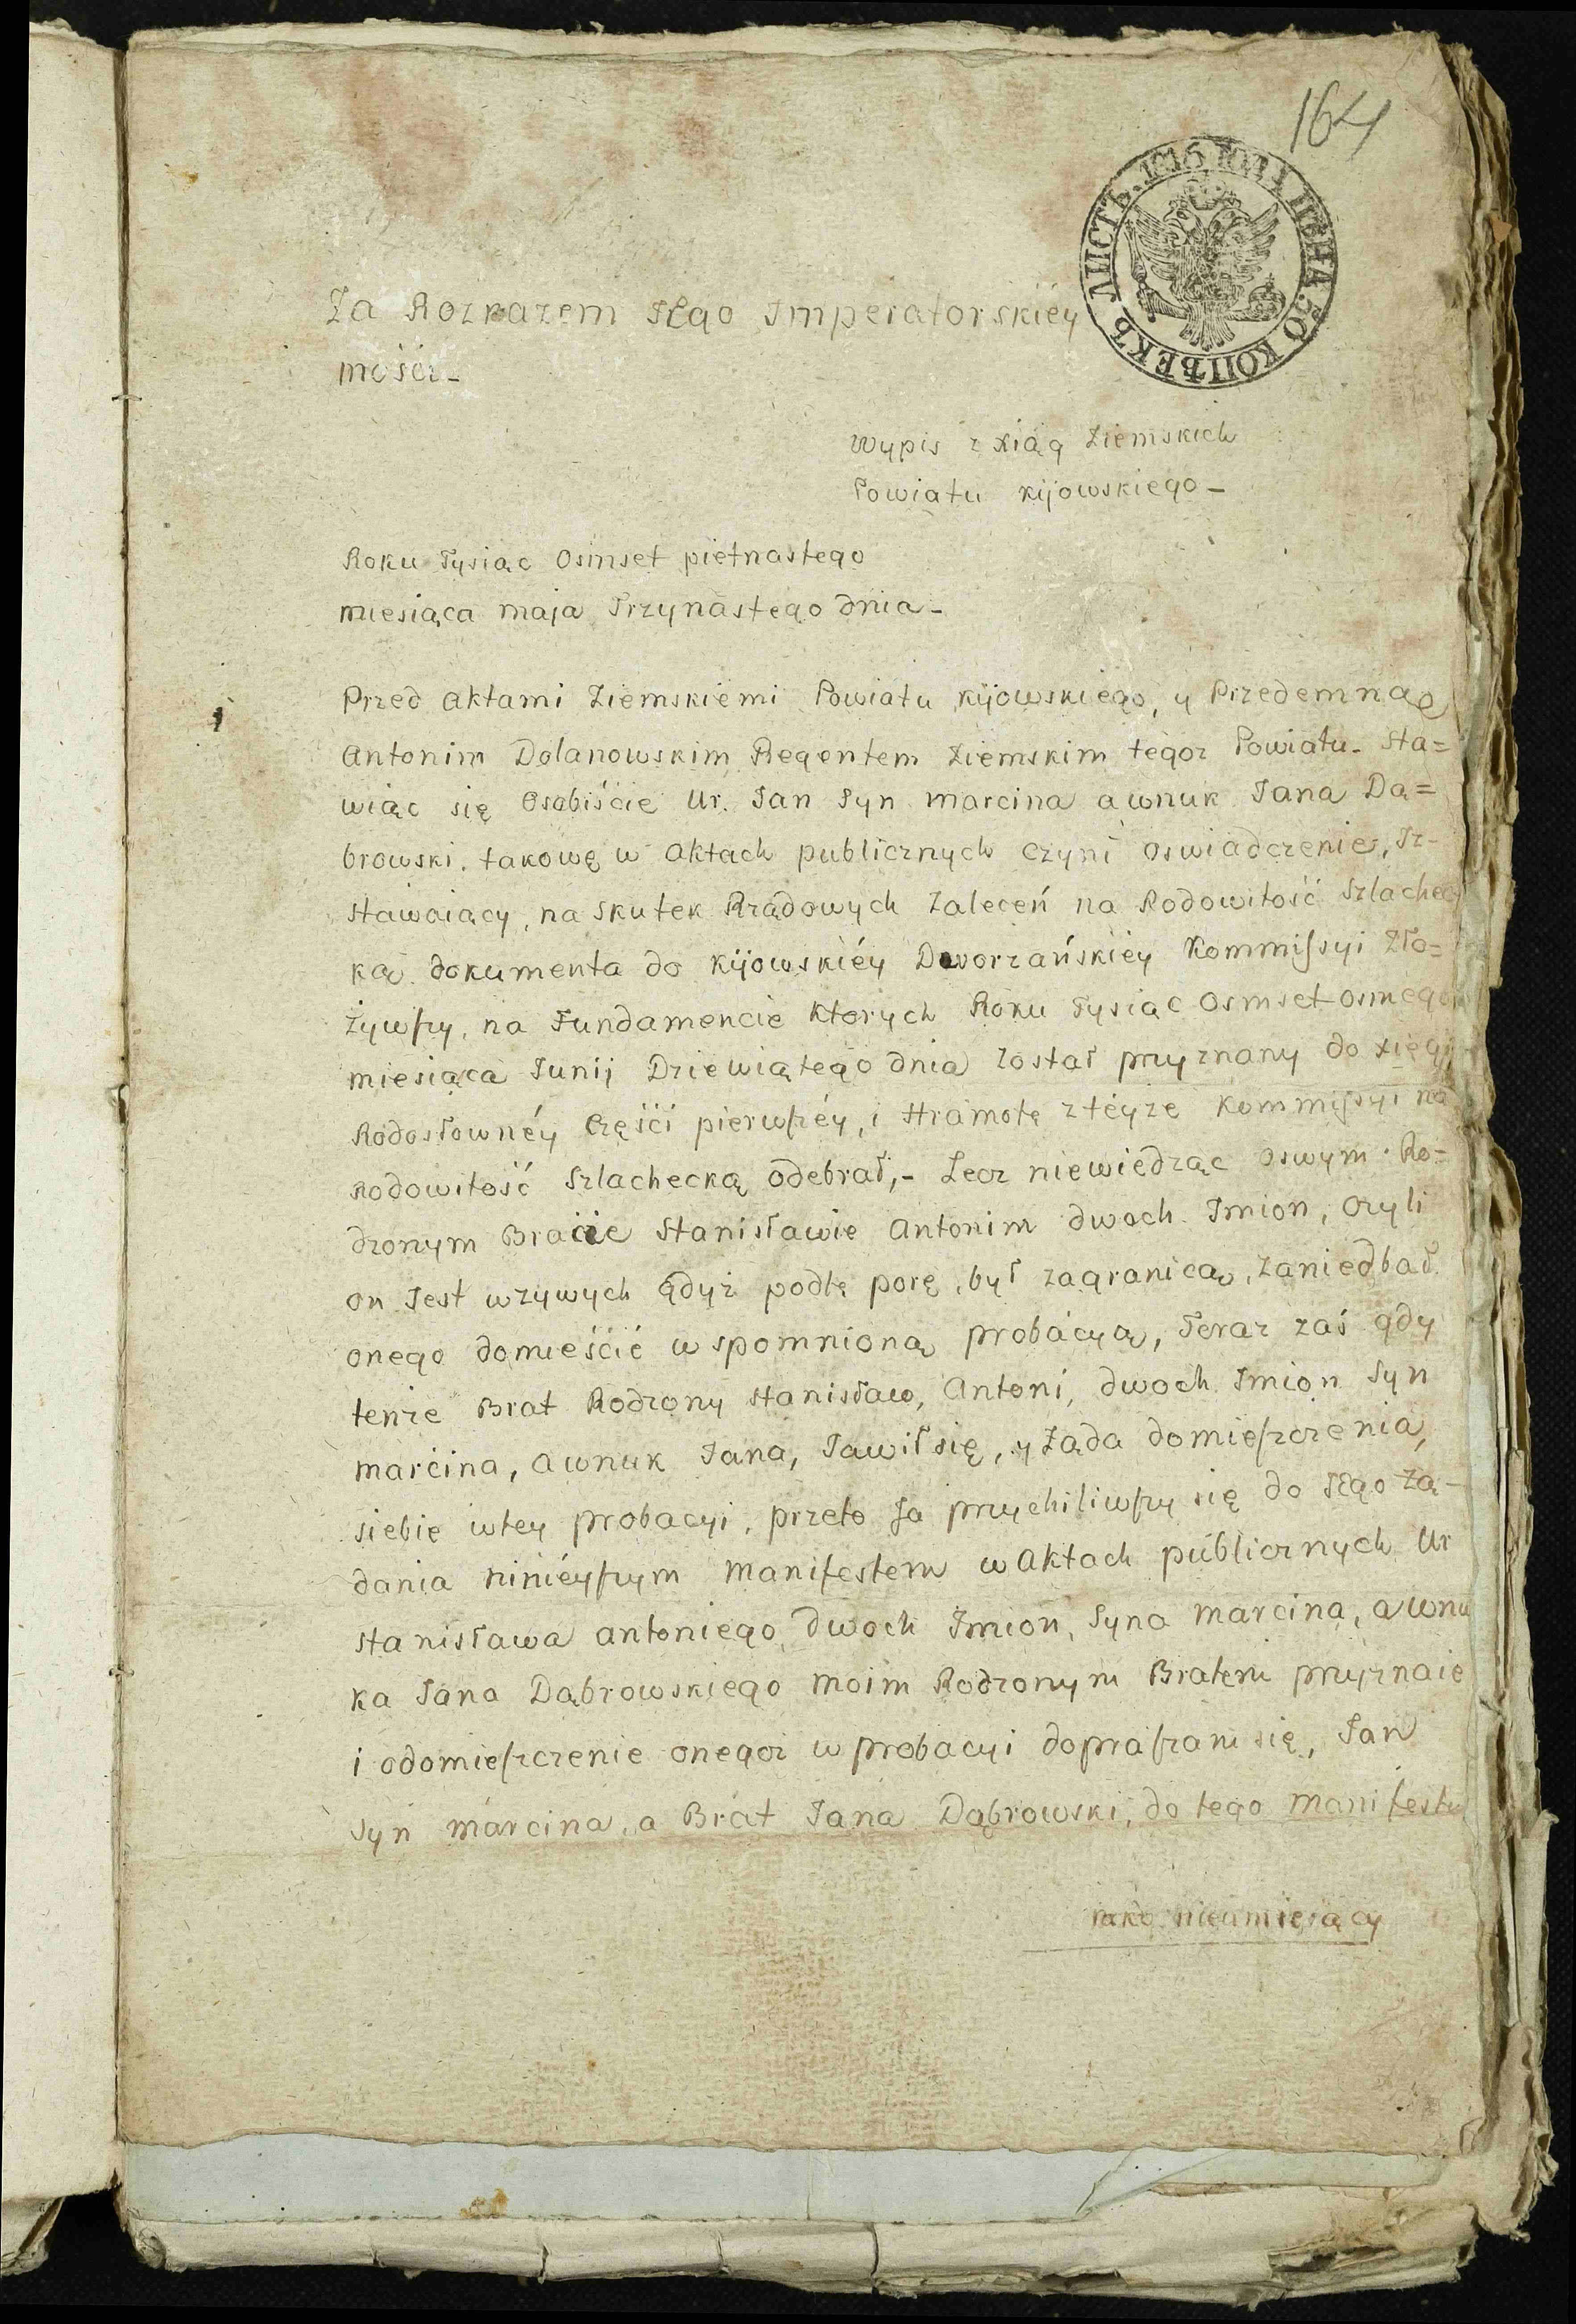 164
ЛИСТЪ. 1816 ГОДА ЦѢНА 50 КОПѢЕКЪ
Za Rozkazem Jego Imperatorskiéy
mości_
Wypis z xiąg Ziemskich
Powiatu kijowskiego_
Roku Tysiąc Osmset pietnastego
miesiąca maja Trzynastego dnia_
Przed Aktami Ziemskiemi Powiatu kijowskiego, y Przedemną
Antonim Dolanowskim Regentem Ziemskim tegoz Powiatu_ Sta=
wiąc się Osobiście Ur. Jan Syn marcina awnuk Jana Dą=
browski. takowę w Aktach publicznych czyni oswiadczenie,
stawaiący, na Skutek Rządowych Zaleceń na Rodowitość Szlachec
ką dokumenta do kijowskiéy Dworzańskiéy Kommissyi Zło=
żywszy, na Fundamencie ktorych Roku Tysiąc Osmset osmego
miesiąca Junij Dziewiątego dnia został przyznany do xięgi
Rodosłownéy Części pierwszéy, i Hramotę ztéyże Kommissyi na
Rodowitość Szlachecką odebrał,_ Lecz niewiedząc oswym Ro=
dzonym Bracie Stanisławie Antonim dwoch Imion, czyli
on Jest wżywych gdyż podtę porę, był zagranicą, zaniedbał
onego domieścić wspomnioną probacyą, Teraz zaś gdy
tenże Brat Rodzony Stanisław, Antoni, dwoch Imion Syn
marcina, awnuk Jana, Jawił się, y Żąda domieszczenia,
siebie wtey probacyi, przeto Ja przychiliwszy się do Jego Żą_
dania ninieyszym manifestem w Aktach publicznych Ur
Stanisława Antoniego dwoch Imion, Syna marcina, awnu
ka Jana Dąbrowskiego moim Rodzonym Bratem przyznaie
i odomieszczenie onegoz w probacyi dopraszam się, Jan
Syn marcina, a Brat Jana Dąbrowski, do tego manifestu
jako nieumieiący